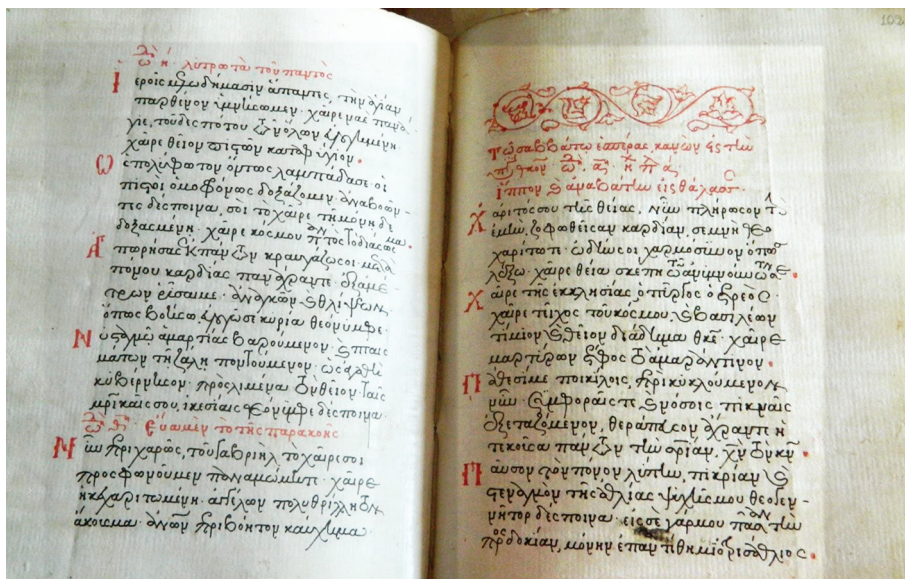 ᾠδὴ η· λυτρωτὰ τοῦ παντὸς
Ἱεροῖς μελωδήμασιν ἅπαντες, τὴν ἁγίαν
παρθένον ὑμνήσωμεν· χαῖρε ναὲ πανά
γιε, τοῦ δεσπότου
χαῖρε θεῖον πιστῶν καταφύγιον.
Ὦ πολύφωτον ὄντως λαμπάδα σε· οἱ
πιστοὶ ὁμοφώνως δοξάζομεν ἀναβοῶν
τες δέσποινα, σοὶ τὸ χαῖρε τῇ μόνῃ δε
δοξασμένη· χαῖρε κόσμου
Ἀπορήσας ἐκ πάντων κραυγάζω σοι·
πόνου καρδίας πανάχραντε· ἐξ ἀμέ
τρων ῥῦσαί με· ἀναγκῶν καὶ θλίψεων
ὅπως βοήσω κυρία θεόνυμφε·
Νυσταγμῷ ἁμαρτίας βαρούμενον· καὶ παθη
μάτων τῇ ζάλῃ ποντούμενον· ὡς ἀγαθὴ
κυβέρνησον· πρὸς λιμένα τὸν θεῖον ταῖς
μητρικαῖς σου, ἱκεσίαις θεόνυμφε δέσποινα·
ᾠδὴ θ· Εὔα μὲν τῷ τῆς παρακοῆς
Νῦν περιχαρῶς, τοῦ Γαβριὴλ τὸ χαῖρέ σοι
προσφωνοῦμεν χαῖρε
ἡ κεχαριτωμένη· ἀγγέλων πολυθρύλλητον
ἄκουσμα· ἀνθρώπων περιβόητον καύχημα
102
τῷ σαββάτῳ ἑσπέρας, κανὼν εἰς τὴν
θεοτόκον· ᾠδὴ α· ἦχος πλ α
ἵππον καὶ ἀναβάτην εἰς θάλασσαν
Χαριτός σου τῆς θείας, νῦν πλήρωσον τὴν
ἐμὴν ζοφωθεῖσαν καρδίαν, σεμνὴ θεο
χαρίτωτε· ᾠδῆς σοι χαρμόσυνον ὅπως
λέξω· χαῖρε θεία σκέπη τῶν ἀνυμνούντων σε.
Χαῖρε τῆς ἐκκλησίας ὁ πύργος ὁ ὡραῖος·
χαῖρε τεῖχος τοῦ κόσμου, καὶ βασιλέων
τίμιον καὶ θεῖον διάδημα θεοτόκε· χαῖρε
μαρτύρων στέφος τὸ ἀμαράντινον.
Παθεσί με ποικίλοις, περικυκλούμενον
νῦν· συμφοραῖς τε καὶ νόσοις πικραῖς
ἐξεταζόμενον, θεράπευσον ἄχραντε ἡ
τεκοῦσα πάντων τὴν ὑγείαν,
Παῦσον τὸν πόνον λύπην, πικρίαν καὶ
στεναγμὸν τῆς ἀθλίας ψυχῆς μου θεογεν
νῆτορ δέσποινα· εἰς σὲ γάρ μου πᾶσαν τὴν
προσδοκίαν, μόνην